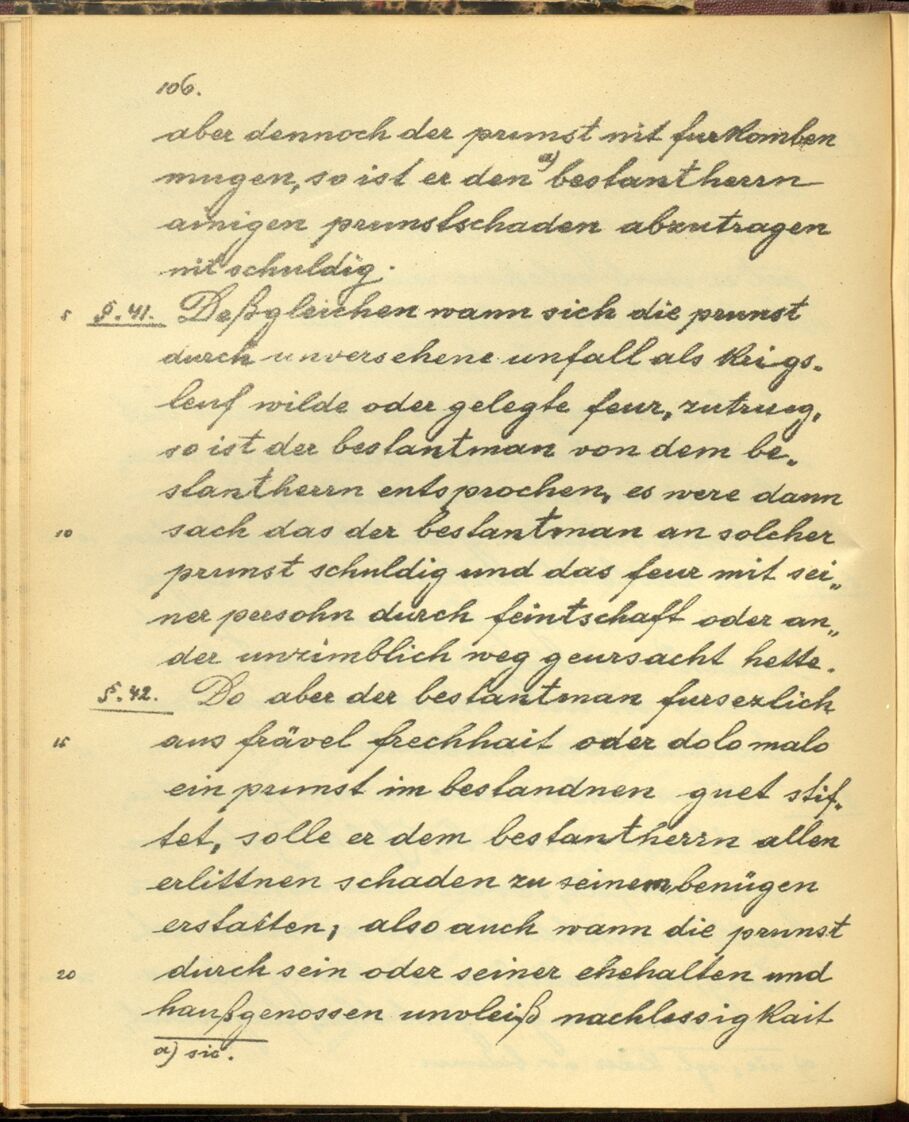 106.
aber dennoch der prunst nit furkomben
mugen, so ist er den a) bestantherrn
ainigen prunstschaden abzutragen
nit schuldig.
5 §. 41. Deßgleichen wann sich die prunst
durch unversehene unfall als krigs-
leuf wilde oder gelegte feur, zutrueg,
so ist der bestantman von dem be-
stantherrn entsprochen, es were dann
10 sach das der bestantman an solcher
prunst schuldig und das feur mit sei„
ner persohn durch feintschaft oder an„
der unzimblich weg geursacht hette.
§. 42. Do aber der bestantman fursezlich
15 aus frävel frechhait oder dolo malo
ein prunst im bestandnen guet stif-
tet, solle er dem bestantherrn allen
erlittnen schaden zu seinem benügen
erstatten; also auch wann die prunst
20 durch sein oder seiner ehehalten und
haußgenossen unvleiß nachlessigkait
a) sic.